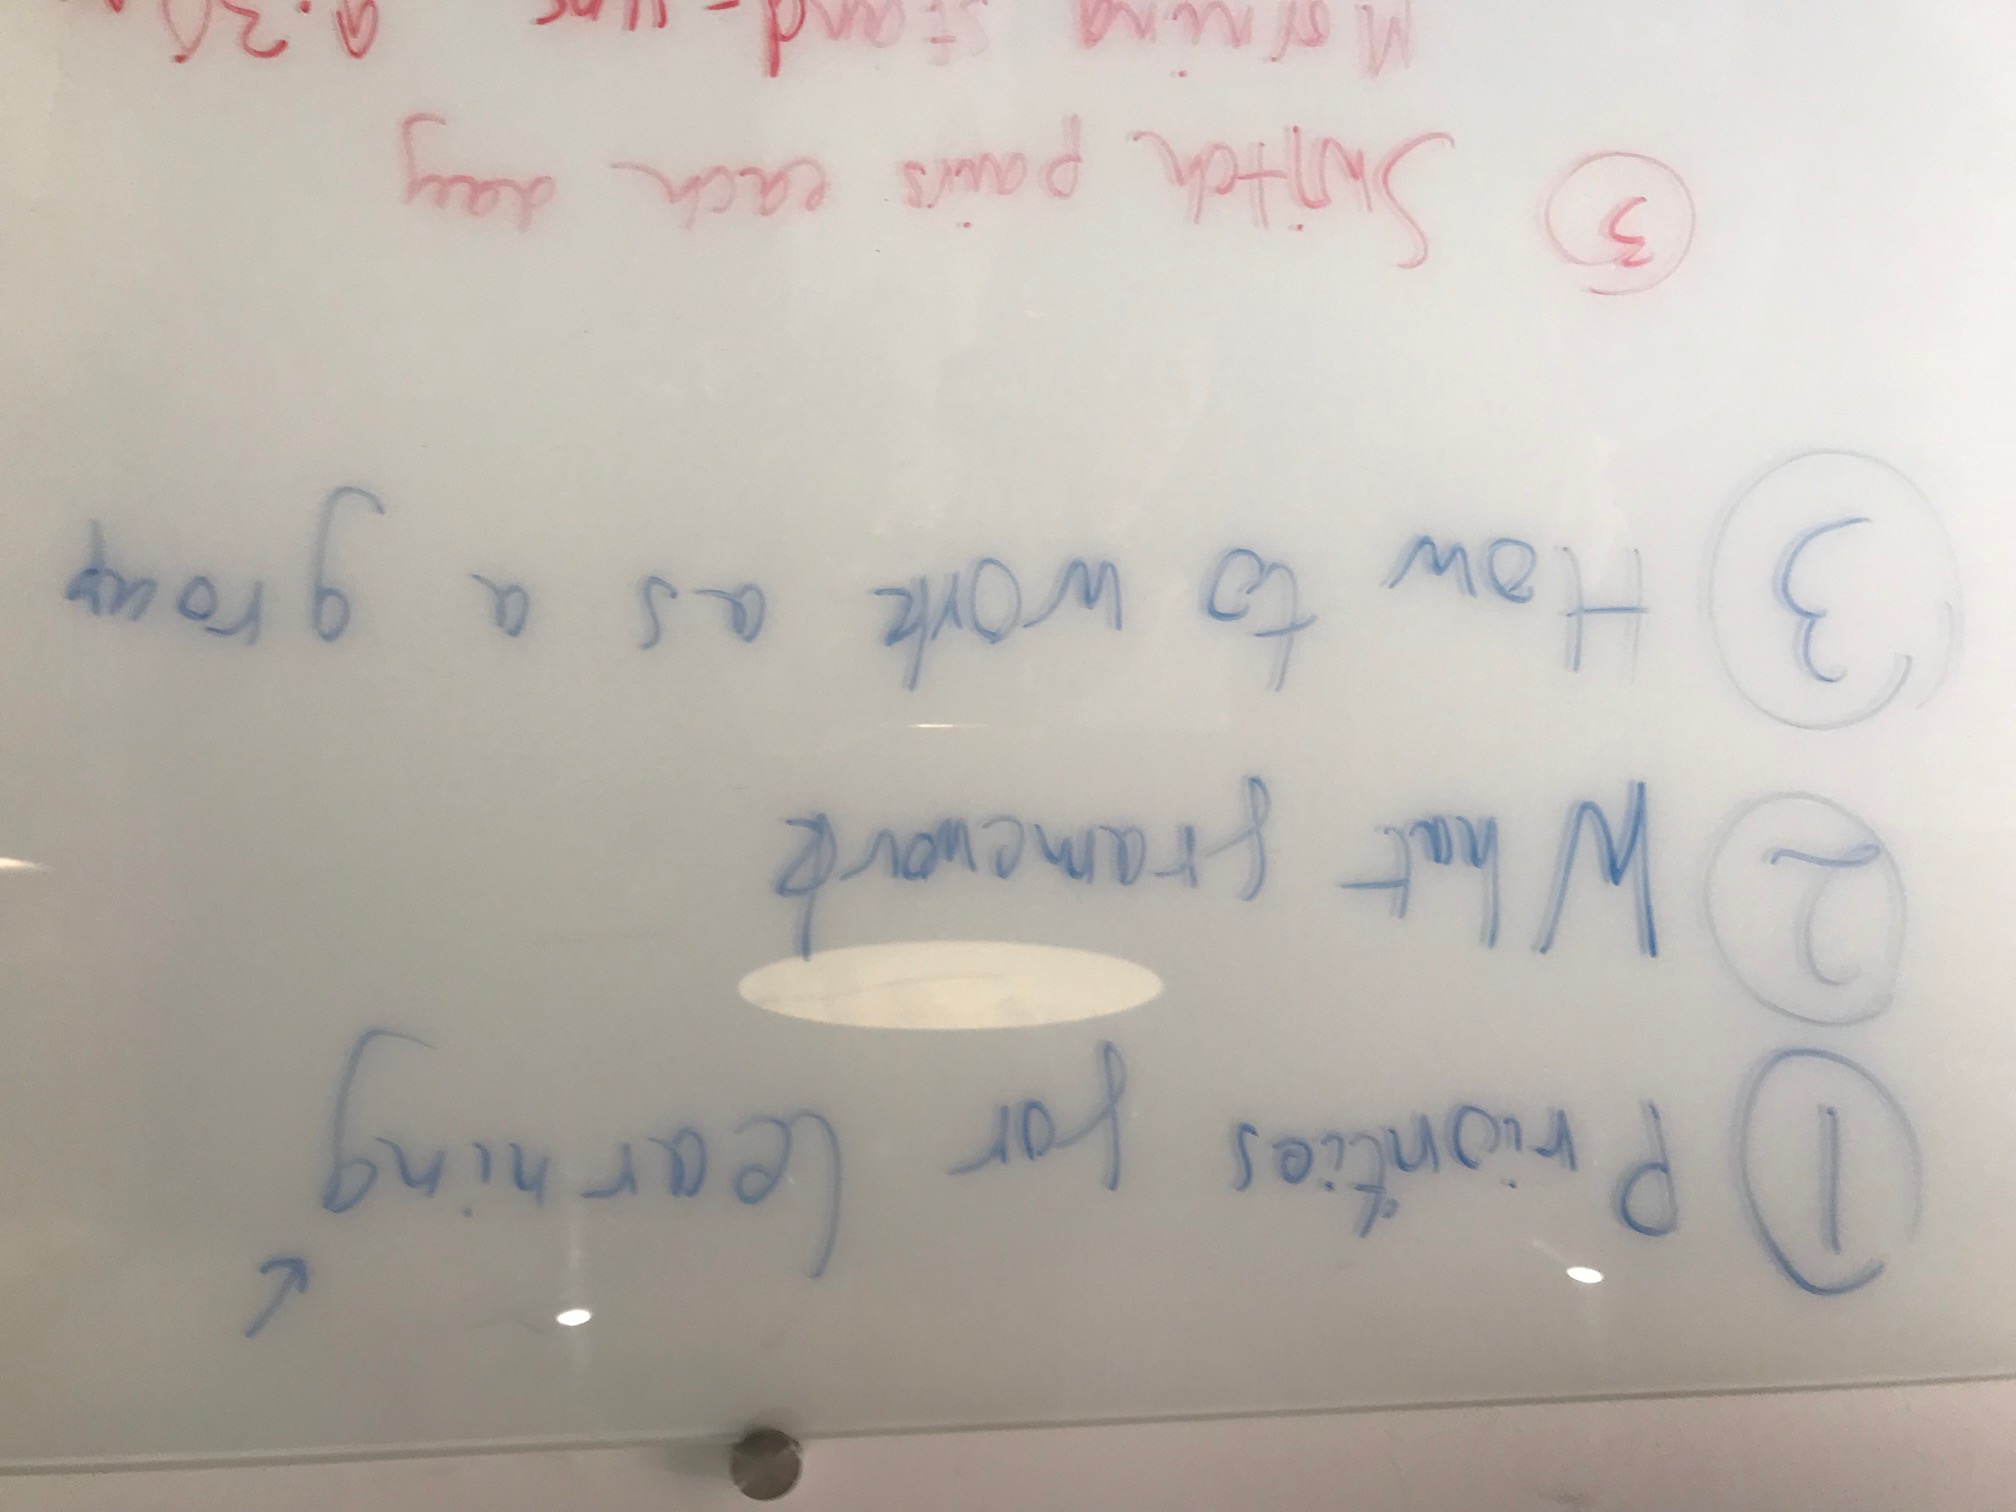 ① Priorities for learning ↙
② What framework
③ How to work as a group
③ Switch pairs each day
Morning stand-ups 9.30